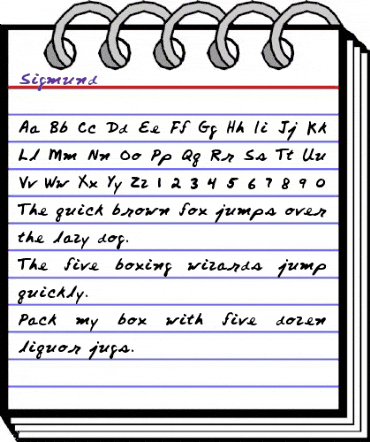 Sigmund
Aa Bb Cc Dd Ee Ff Gg Hh Ii Jj Kk
Ll Mm Nn Oo Pp Qq Rr Ss Tt Uu
Vv Ww Xx Yy Zz 1 2 3 4 5 6 7 8 9 0
The quick brown fox jumps over
the lazy dog.
The five boxing wizards jump
quickly.
Pack my box with five dozen
liquor jugs.